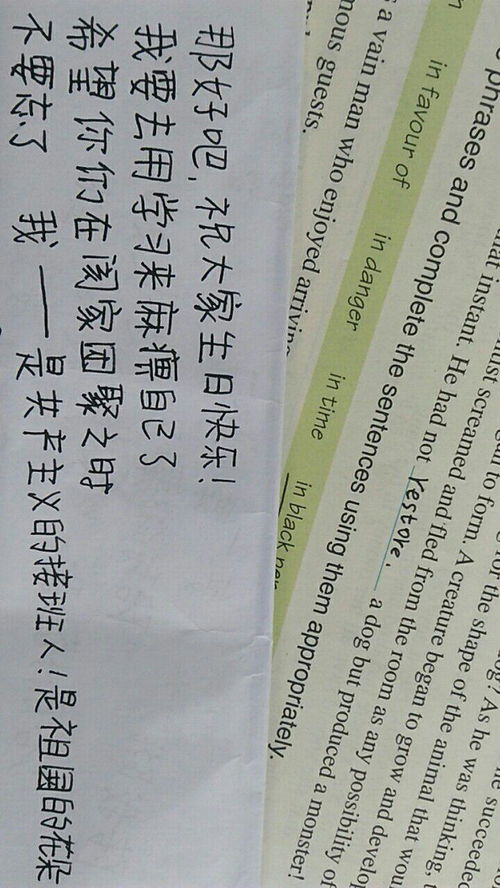 succeeded
As he was thinking,
the shape of the animal that
to form. A creature began to grow and develop
screamed and fled from the room as any possibility of
that instant. He had not restore. a dog but produced a monster!
phrases and complete the sentences using them appropriately.
in favour of in danger in time in black
a vain man who enjoyed
guests.
那好吧，祝大家生日快乐！
我要去用学习来麻痹自己了
希望你们在阖家团聚之时
不要忘了 我——是共产主义的接班人！是祖国的花朵